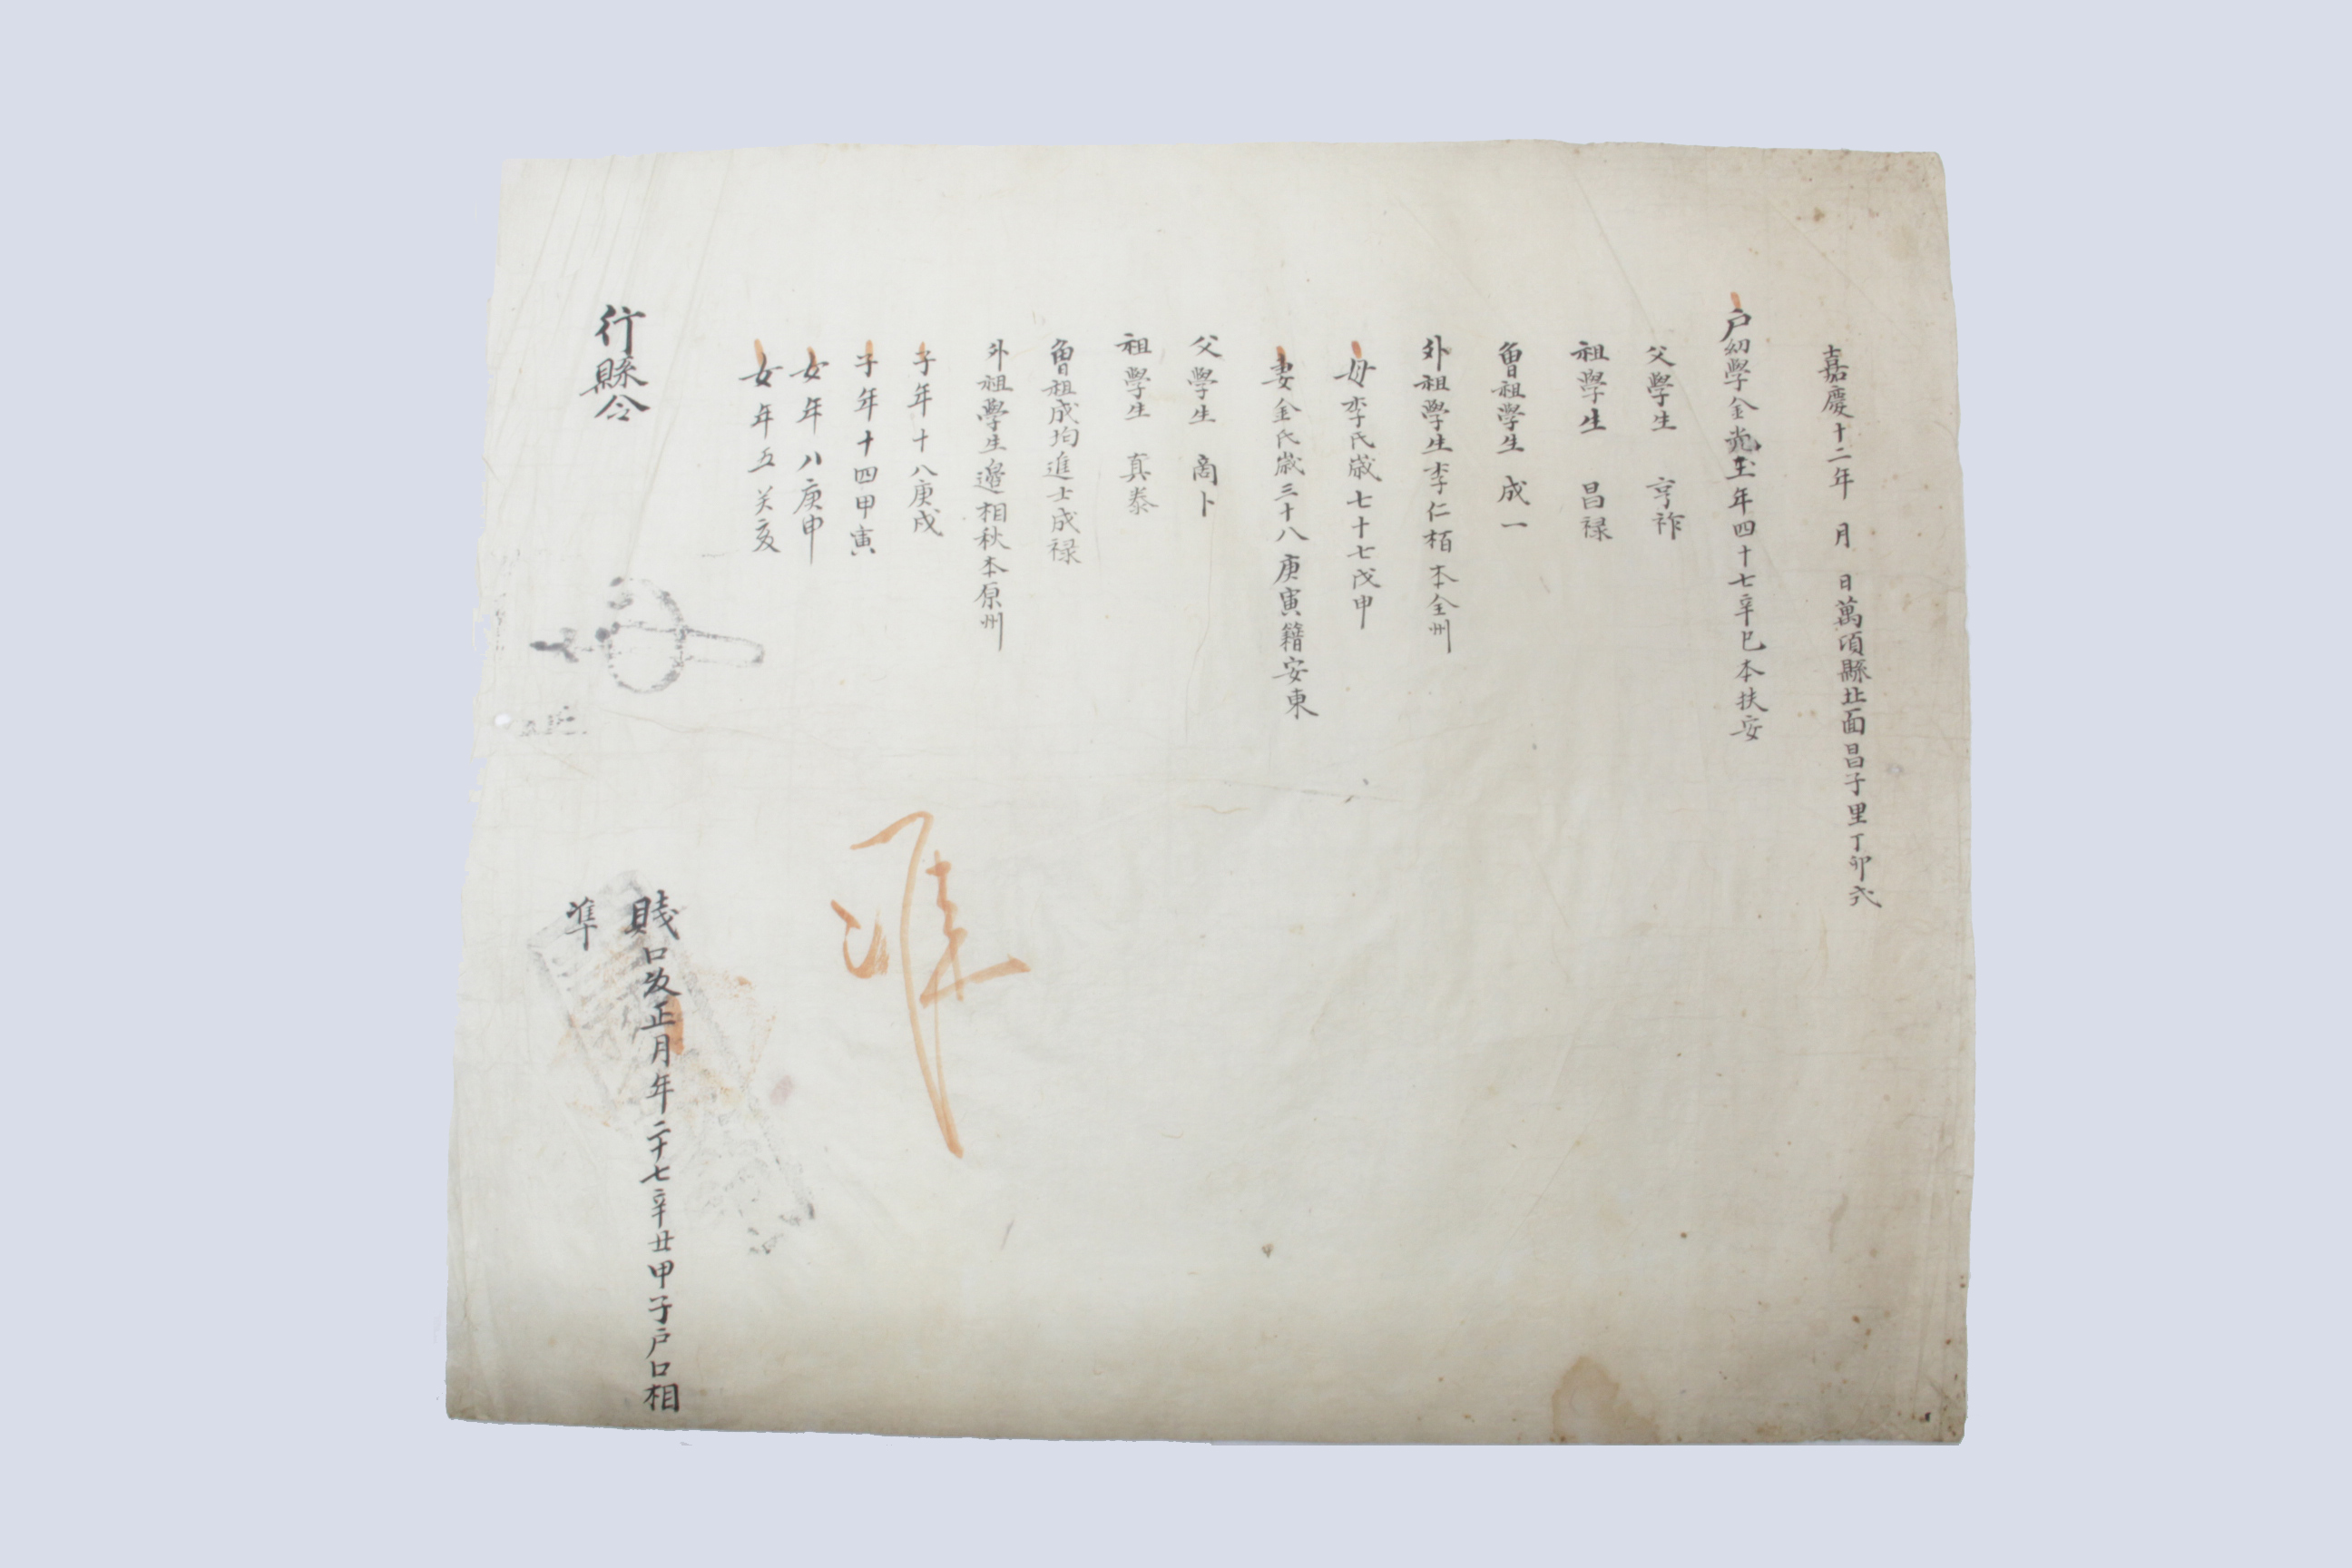 嘉慶十二年 月 日萬頃縣北面昌子里丁卯式
戶幼學金光 年四十七辛巳本扶安
父學生 亨祚
祖學生 昌禄
曾祖學生 成一
外祖學生李仁栢本全州
母李氏歲七十七戊申
妻金氏歲三十八庚寅籍安東
父學生 啇卜
祖學生 真泰
曾祖成均進士成禄
外祖學生邉相秋本原州
子年十八庚戌
子年十四甲寅
女年八庚申
女年五癸亥
賎口 正月年二十七辛丑甲子戶口相
準
行縣令
準